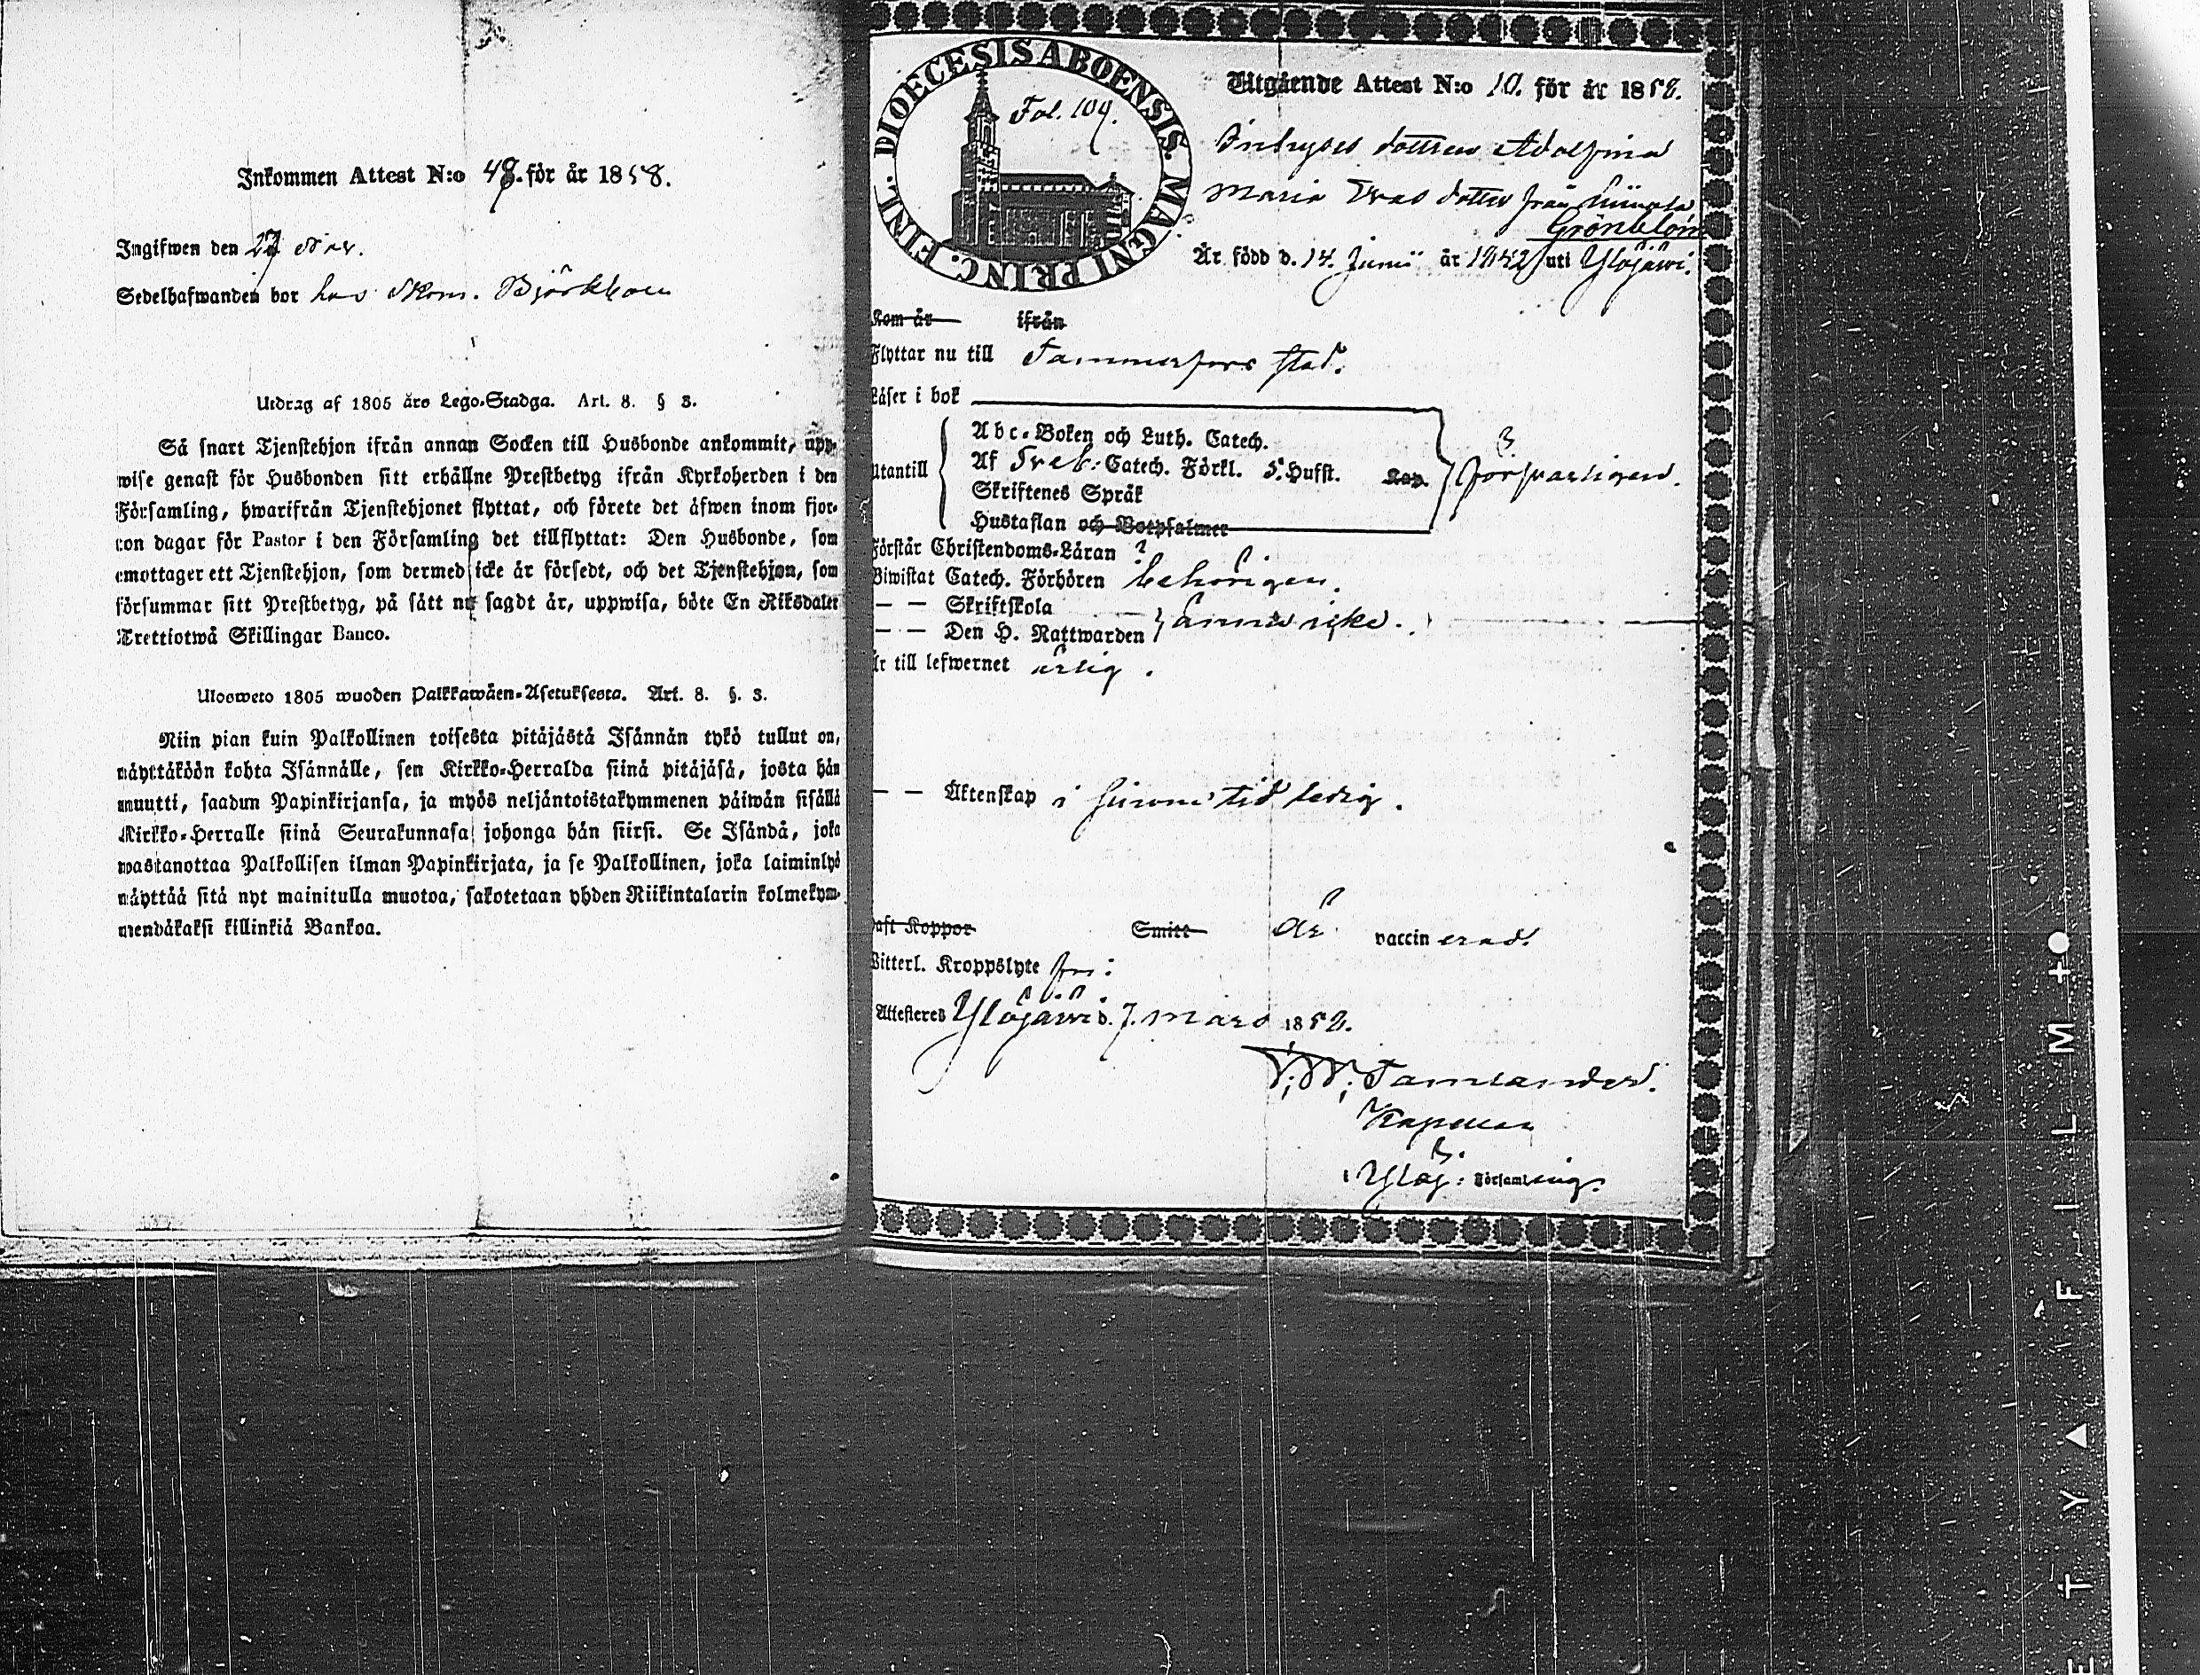 Inkommen Attest N:o 48. för år 1858.
Ingifwen den 27 Nov.
Sedelhafwanden bor hos Skom. Björkbom
Utdrag af 1805 års Lego-Stadga. Art. 8. § 3.
Så snart Tjenstehjon ifrån annan Socken till Husbonde ankommit, upp-
wise genast för Husbonden sitt erhållne Prestbetyg ifrån Kyrkoherden i den
Församling, hwarifrån Tjenstehjonet flyttat, och förete det äfwen inom fjor-
ton dagar för Pastor i den Församling det tillflyttat: Den Husbonde, som
emottager ett Tjenstehjon, som dermed icke är försedt, och det Tjenstehjon, som
försummar sitt Prestbetyg, på sätt nu sagdt är, uppwisa, böte En Riksdaler
Trettiotwå Skillingar Banco.
Ulosweto 1805 wuoden Palkkawäen-Asetuksesta. Art. 8. §. 3.
Niin pian kuin Palkollinen toisesta pitäjästä Isännän tykö tullut on,
näyttäköön kohta Isännälle, sen Kirkko-Herralda siinä pitäjäsä, josta hän
muutti, saadun Papinkirjansa, ja myös neljäntoistakymmenen päiwän sisällä
Kirkko-Herralle siinä Seurakunnasa johonga hän siirsi. Se Isändä, joka
wastanottaa Palkollisen ilman Papinkirjata, ja se Palkollinen, joka laiminlyö
näyttää sitä nyt mainitulla muotoa, sakotetaan yhden Riikintalarin kolmekym-
mendäkaksi killinkiä Bankoa.
DIOECESIS ABOENSIS. MAGNI PRINC. FINL.
Fol. 109.
Utgående Attest N:o 10. för år 1858.
dottren Adolfina
Maria dotter från
Grönblom
Är född d. 14. Junii år 1842 uti Ylöjärvi.
Kom år ifrån
Flyttar nu till Tammerfors stad.
Läser i bok
Abc-Boken och Luth. Catech.
Utantill Af Sveb: Catech. Förkl. 5. Hufst. Kap. försvarligen.
Skriftenes Språk
Hustaflan och Botpsalmer
Förstår Christendoms-Läran
Biwistat Catech. Förhören behörigen.
— — Skriftskola
— — Den H. Nattwarden ännu icke.
Är till lefwernet ärlig.
— — Äktenskap i sinom tid ledig.
haft Koppor Smitt Är vaccinerad.
Witterl. Kroppslyte fri:
Attesteres Ylöjärvi d. 7. Mars 1858.
Tamlander.
Kapellan
i Ylöj: Församling.
FILM